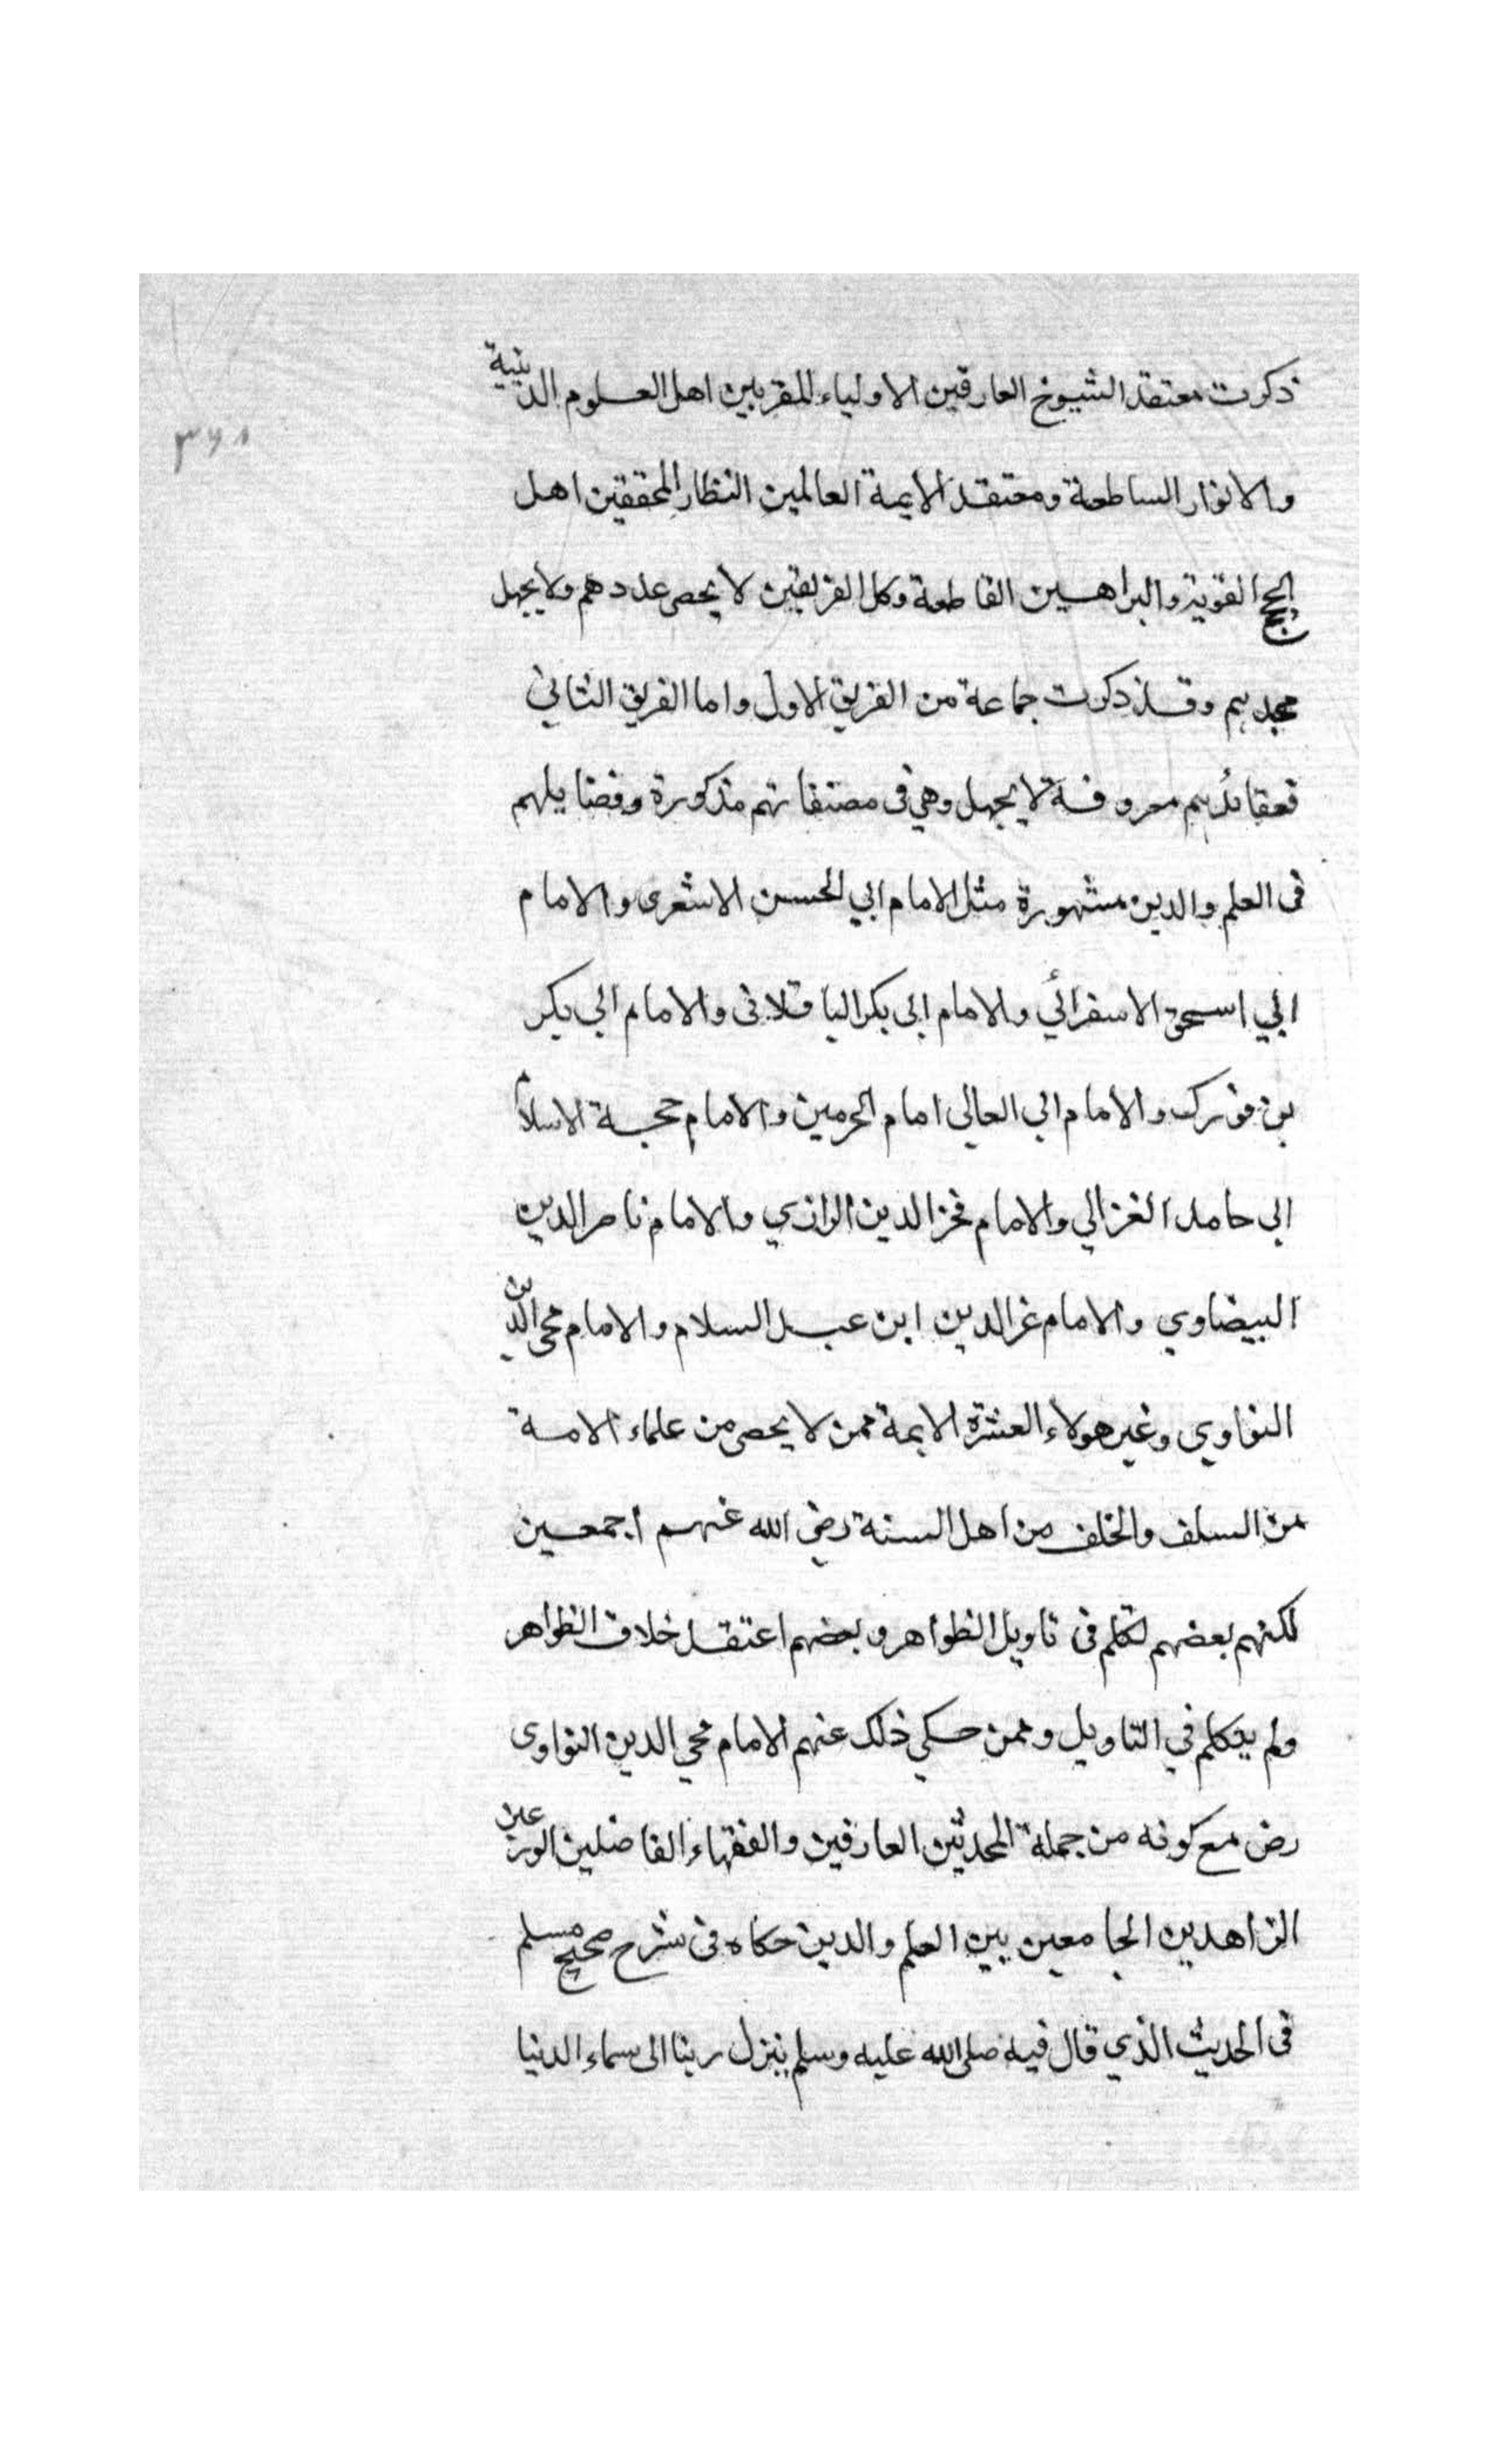 ذكرت معتقد الشيوخ العارفين الاولياء المقربين اهل العلوم الدينية
والانوار الساطعة ومعتقد الايمة العالمين النظار المحققين اهل
الحجج القوية والبراهين القاطعة وكل الفريقين لا يحصى عددهم ولا يجهل
مجدهم وقد ذكرت جماعة من الفريق الاول واما الفريق الثاني
فعقائدهم معروفة لا يجهل وهي في مصنفاتهم مذكورة وفضايلهم
فى العلم والدين مشهورة مثل الامام ابي الحسن الاشعرى والامام
ابي اسحق الاسفرائي والامام ابى بكر الباقلانى والامام ابي بكر
بن فورك والامام ابي العالى امام الحرمين والامام حجة الاسلام
ابى حامد الغزالي والامام فخر الدين الرازي والامام ناصر الدين
البيضاوي والامام عز الدين ابن عبد السلام والامام محي الدين
النواوي وغير هولاء العشرة الايمة ممن لا يحصى من علماء الامة
من السلف والخلف من اهل السنة رضي الله عنهم اجمعين
لكنهم بعضهم تكلم فى تاويل الظواهر وبعضهم اعتقد خلاف الظواهر
ولم يتكلم في التاويل وممن حكي ذلك عنهم الامام محي الدين النواوى
رض مع كونه من جملة المحدثين العارفين والفقهاء الفاضلين الورعين
الزاهدين الجامعين بين العلم والدين حكاه فى شرح صحيح مسلم
فى الحديث الذي قال فيه صلى الله عليه وسلم ينزل ربنا الى سماء الدنيا